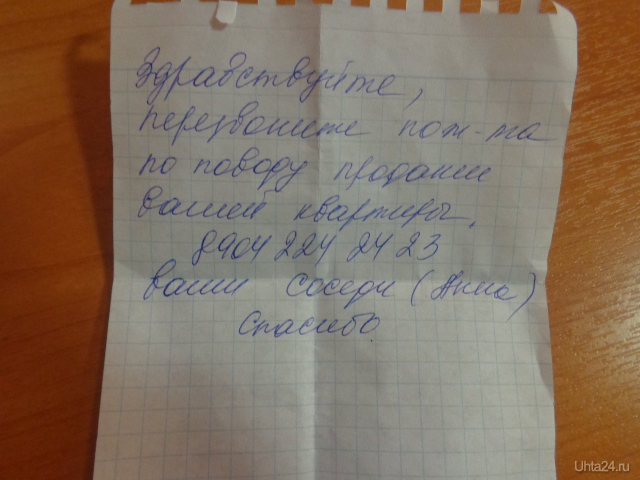 Здравствуйте,
перезвоните пож-та
по поводу продажи
вашей квартиры,
8904 224 24 23
ваши соседи (Анна)
спасибо
Uhta24.ru